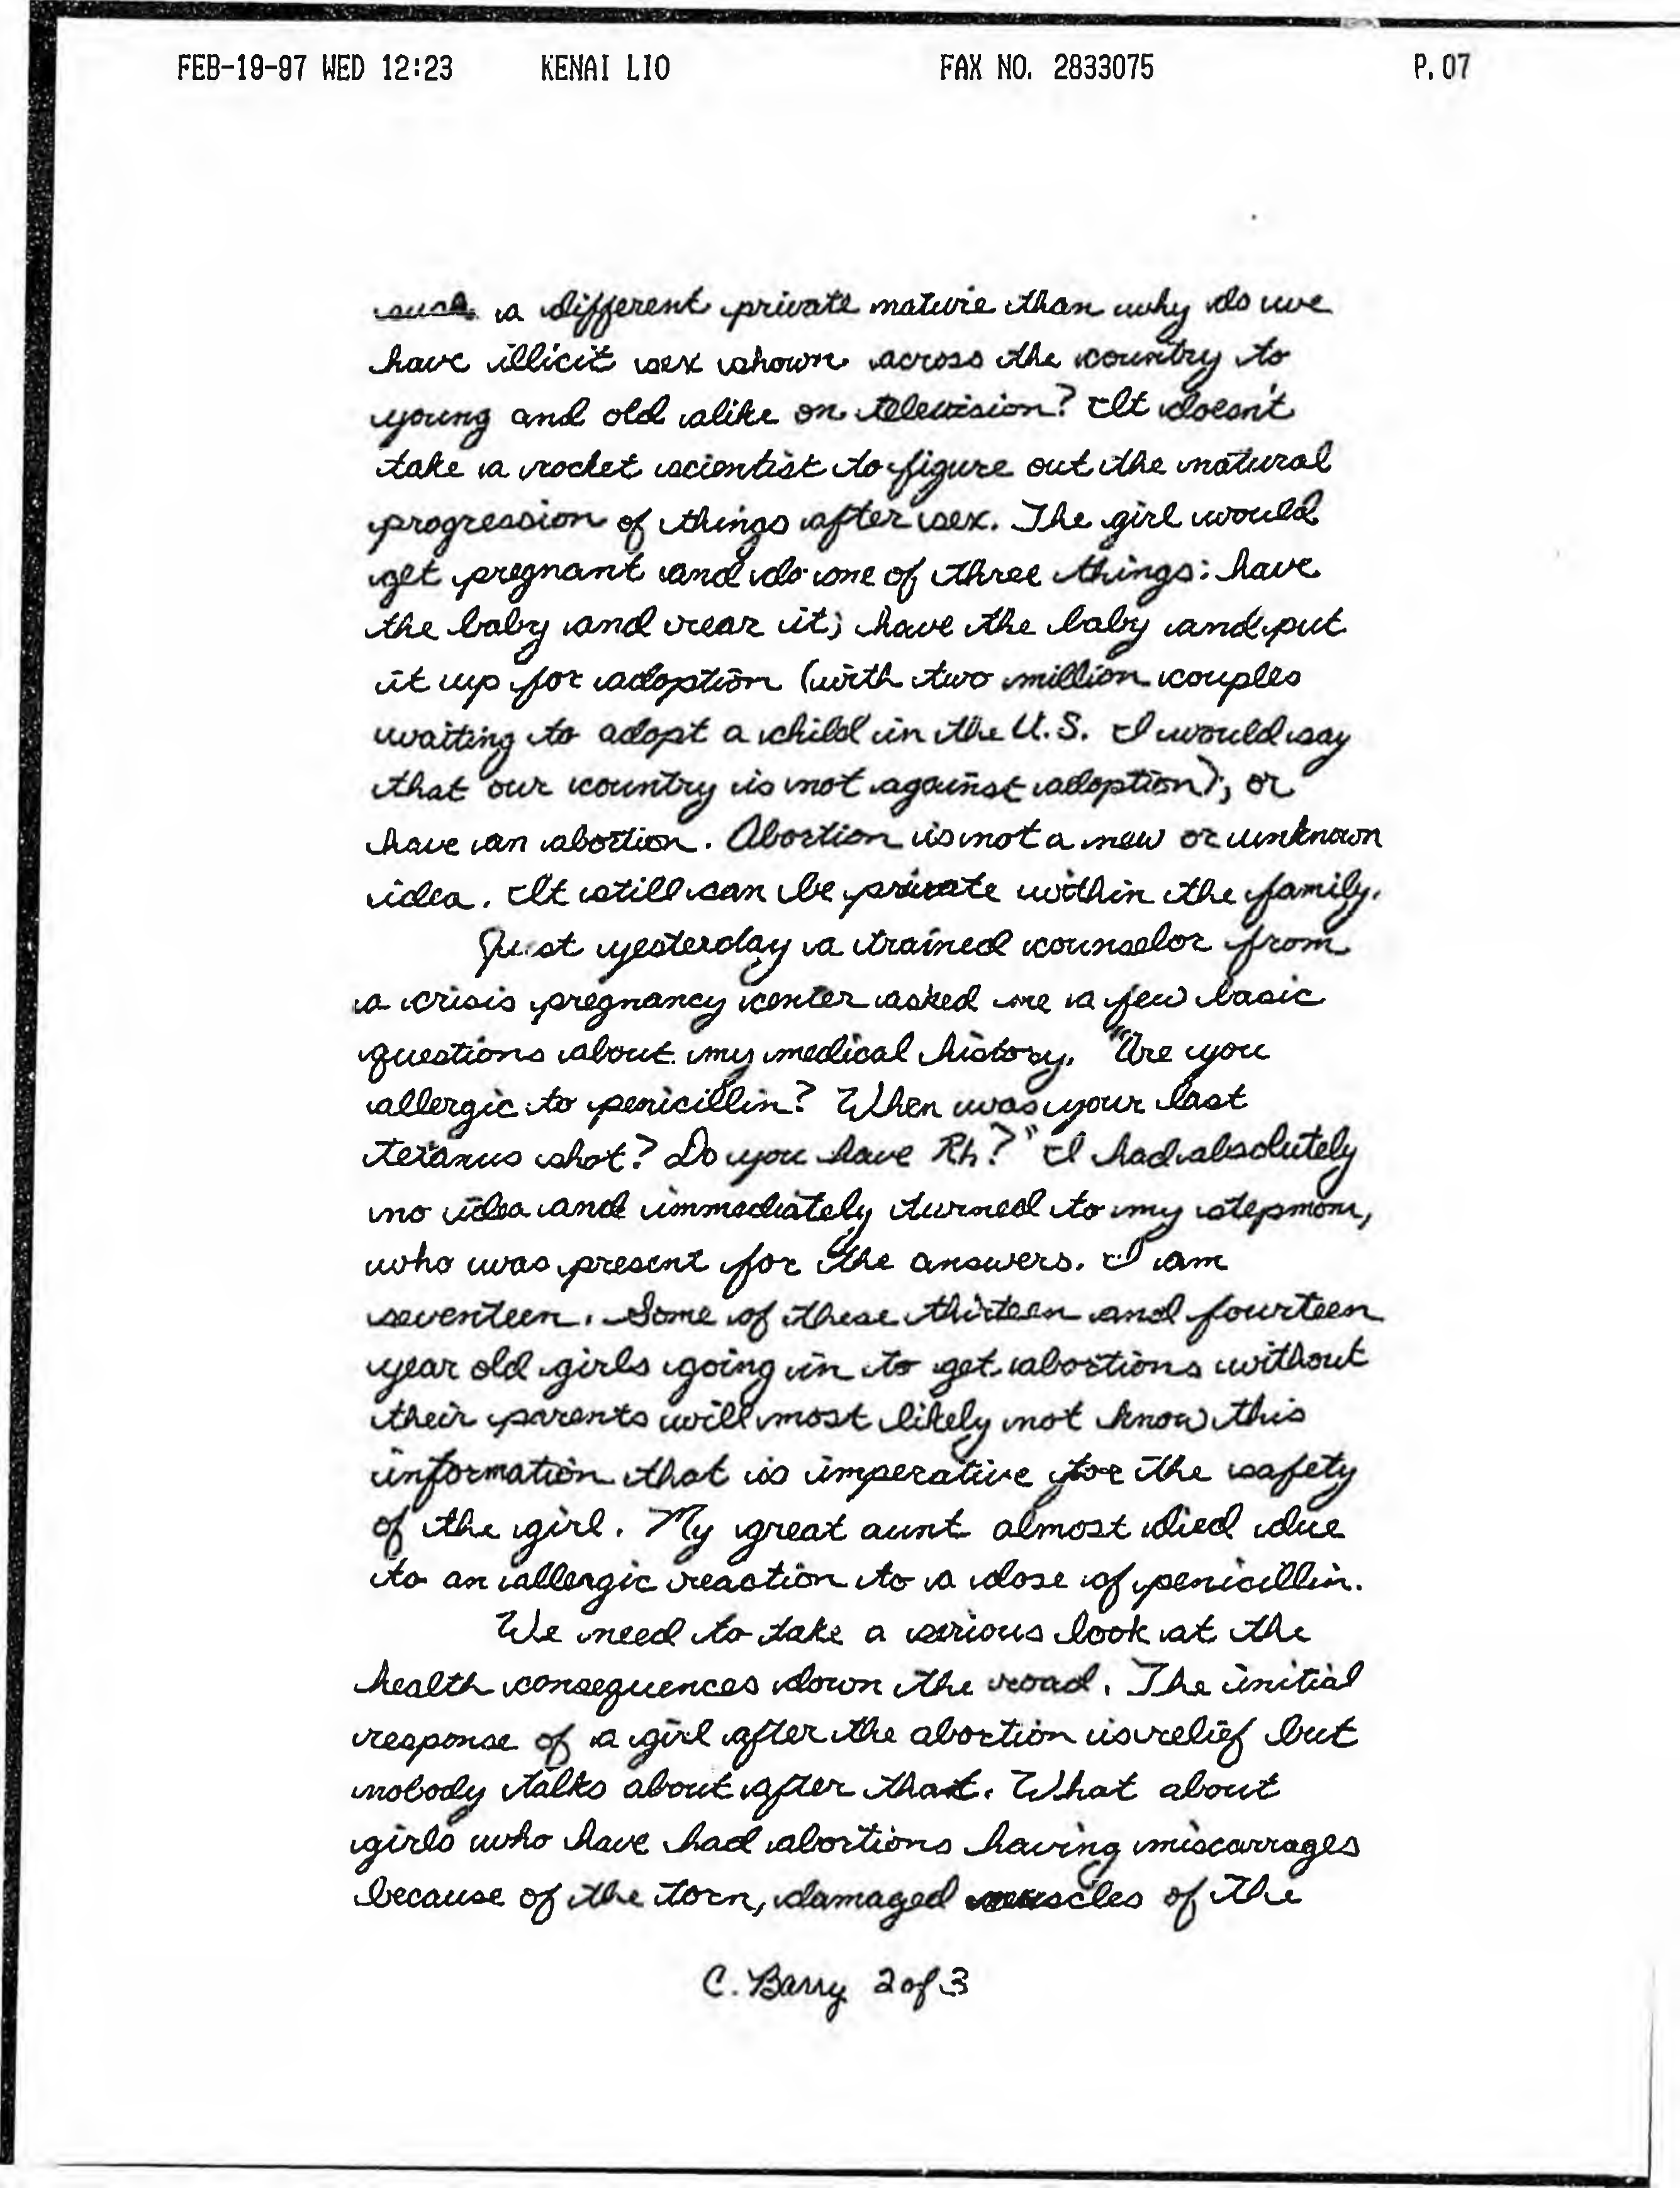 FEB-19-97 WED 12:23 KENAI LIO FAX NO. 2833075 P.07
such a different private mature than why do we
have illicit sex shown across the country to
young and old alike on television? It doesn't
take a rocket scientist to figure out the natural
progression of things after sex. The girl would
get pregnant and do one of three things: have
the baby and rear it; have the baby and put
it up for adoption (with two million couples
waiting to adopt a child in the U.S. I would say
that our country is not against adoption); or
have an abortion. Abortion is not a new or unknown
idea. It still can be private within the family.
Just yesterday a trained counselor from
a crisis pregnancy center asked me a few basic
questions about my medical history. "Are you
allergic to penicillin? When was your last
tetanus shot? Do you have Rh?" I had absolutely
no idea and immediately turned to my stepmom,
who was present for the answers. I am
seventeen. Some of these thirteen and fourteen
year old girls going in to get abortions without
their parents will most likely not know this
information that is imperative for the safety
of the girl. My great aunt almost died due
to an allergic reaction to a dose of penicillin.
We need to take a serious look at the
health consequences down the road. The initial
response of a girl after the abortion is relief but
nobody talks about after that. What about
girls who have had abortions having miscarrages
because of the torn, damaged muscles of the
C. Barry 2 of 3